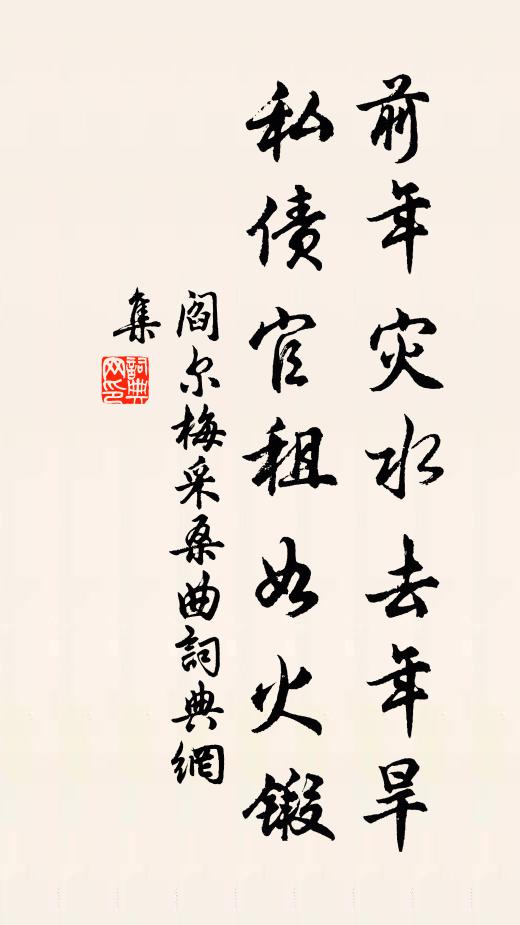 前年灾水去年旱
私债官租如火锻
阎尔梅采桑曲詞典網
集
詞典網印